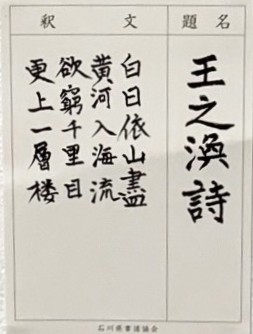 題名
王之渙詩
釈文
白日依山盡
黄河入海流
欲窮千里目
更上一層楼
石川県書道協会